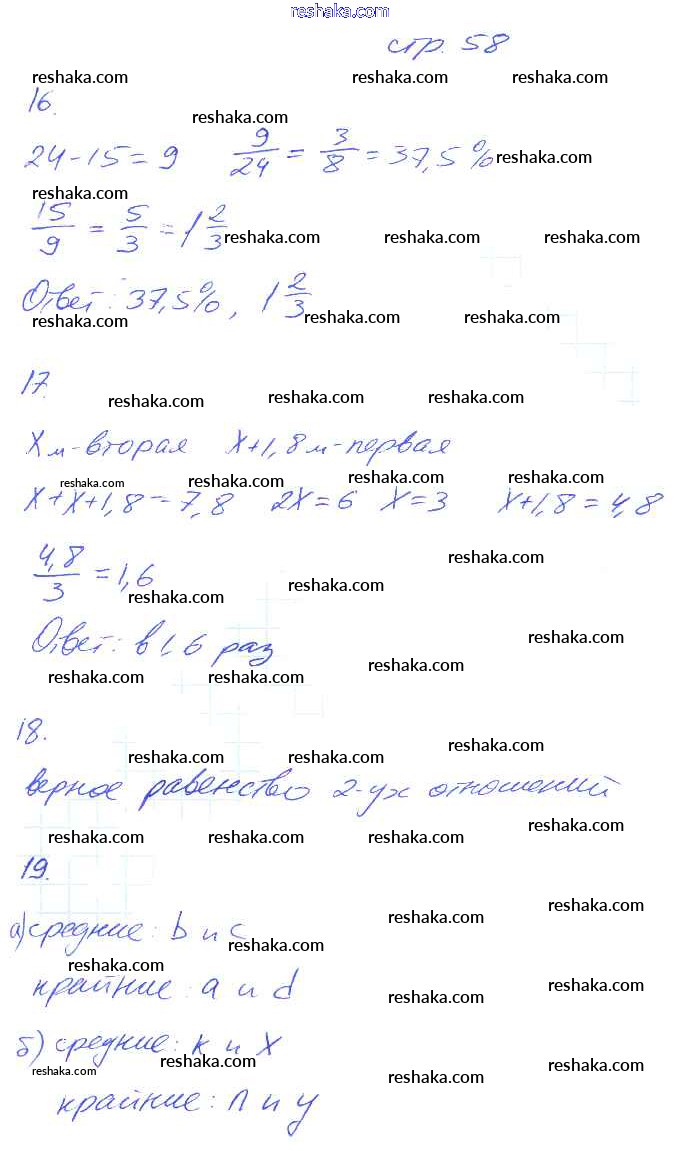 reshaka.com
стр. 58
reshaka.com reshaka.com reshaka.com
16.
reshaka.com
24-15=9 9/24 = 3/8 = 37,5% reshaka.com
reshaka.com
15/9 = 5/3 = 1 2/3 reshaka.com reshaka.com reshaka.com
Ответ: 37,5%, 1 2/3
reshaka.com reshaka.com reshaka.com
17.
reshaka.com reshaka.com reshaka.com
X м-вторая X+1,8 м-первая
reshaka.com reshaka.com reshaka.com reshaka.com
X+X+1,8=7,8 2X=6 X=3 X+1,8=4,8
reshaka.com
4,8/3 = 1,6
reshaka.com reshaka.com
Ответ: в 1,6 раз
reshaka.com
reshaka.com
reshaka.com reshaka.com
18.
reshaka.com
reshaka.com reshaka.com
верное равенство 2-ух отношений
reshaka.com
reshaka.com reshaka.com reshaka.com
19.
reshaka.com reshaka.com
а) средние: b и c
reshaka.com
reshaka.com
крайние: a и d
reshaka.com reshaka.com
б) средние: k и X
reshaka.com reshaka.com reshaka.com
reshaka.com reshaka.com
крайние: n и y